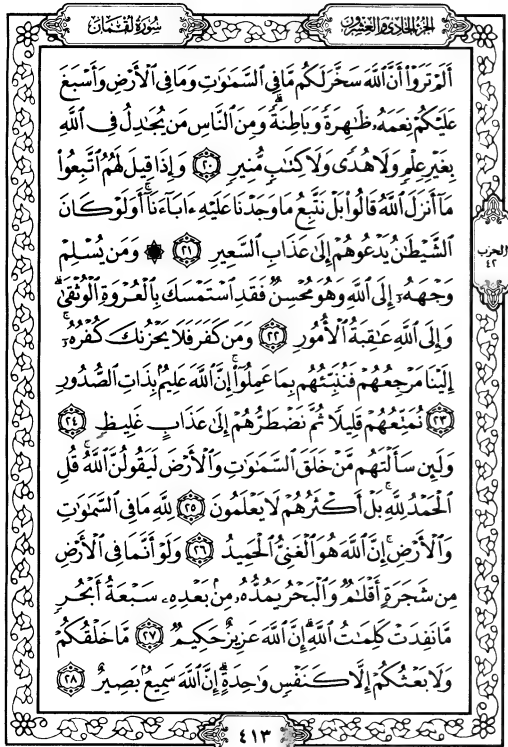 سُورَةُ لُقْمَان
الجُزْءُ الحَادِي وَالعِشْرُونَ
أَلَمْ تَرَوْا۟ أَنَّ ٱللَّهَ سَخَّرَ لَكُم مَّا فِى ٱلسَّمَـٰوَٰتِ وَمَا فِى ٱلْأَرْضِ وَأَسْبَغَ
عَلَيْكُمْ نِعَمَهُۥ ظَـٰهِرَةً وَبَاطِنَةً ۗ وَمِنَ ٱلنَّاسِ مَن يُجَـٰدِلُ فِى ٱللَّهِ
بِغَيْرِ عِلْمٍ وَلَا هُدًى وَلَا كِتَـٰبٍ مُّنِيرٍ ٢٠ وَإِذَا قِيلَ لَهُمُ ٱتَّبِعُوا۟
مَآ أَنزَلَ ٱللَّهُ قَالُوا۟ بَلْ نَتَّبِعُ مَا وَجَدْنَا عَلَيْهِ ءَابَآءَنَآ ۚ أَوَلَوْ كَانَ
ٱلشَّيْطَـٰنُ يَدْعُوهُمْ إِلَىٰ عَذَابِ ٱلسَّعِيرِ ٢١ ۞ وَمَن يُسْلِمْ
وَجْهَهُۥٓ إِلَى ٱللَّهِ وَهُوَ مُحْسِنٌ فَقَدِ ٱسْتَمْسَكَ بِٱلْعُرْوَةِ ٱلْوُثْقَىٰ ۗ
وَإِلَى ٱللَّهِ عَـٰقِبَةُ ٱلْأُمُورِ ٢٢ وَمَن كَفَرَ فَلَا يَحْزُنكَ كُفْرُهُۥٓ ۚ
إِلَيْنَا مَرْجِعُهُمْ فَنُنَبِّئُهُم بِمَا عَمِلُوٓا۟ ۚ إِنَّ ٱللَّهَ عَلِيمٌۢ بِذَاتِ ٱلصُّدُورِ
٢٣ نُمَتِّعُهُمْ قَلِيلًا ثُمَّ نَضْطَرُّهُمْ إِلَىٰ عَذَابٍ غَلِيظٍ ٢٤
وَلَئِن سَأَلْتَهُم مَّنْ خَلَقَ ٱلسَّمَـٰوَٰتِ وَٱلْأَرْضَ لَيَقُولُنَّ ٱللَّهُ ۚ قُلِ
ٱلْحَمْدُ لِلَّهِ ۚ بَلْ أَكْثَرُهُمْ لَا يَعْلَمُونَ ٢٥ لِلَّهِ مَا فِى ٱلسَّمَـٰوَٰتِ
وَٱلْأَرْضِ ۚ إِنَّ ٱللَّهَ هُوَ ٱلْغَنِىُّ ٱلْحَمِيدُ ٢٦ وَلَوْ أَنَّمَا فِى ٱلْأَرْضِ
مِن شَجَرَةٍ أَقْلَـٰمٌ وَٱلْبَحْرُ يَمُدُّهُۥ مِنۢ بَعْدِهِۦ سَبْعَةُ أَبْحُرٍ
مَّا نَفِدَتْ كَلِمَـٰتُ ٱللَّهِ ۗ إِنَّ ٱللَّهَ عَزِيزٌ حَكِيمٌ ٢٧ مَّا خَلْقُكُمْ
وَلَا بَعْثُكُمْ إِلَّا كَنَفْسٍ وَٰحِدَةٍ ۗ إِنَّ ٱللَّهَ سَمِيعٌۢ بَصِيرٌ ٢٨
الحزب
٤٢
٤١٣